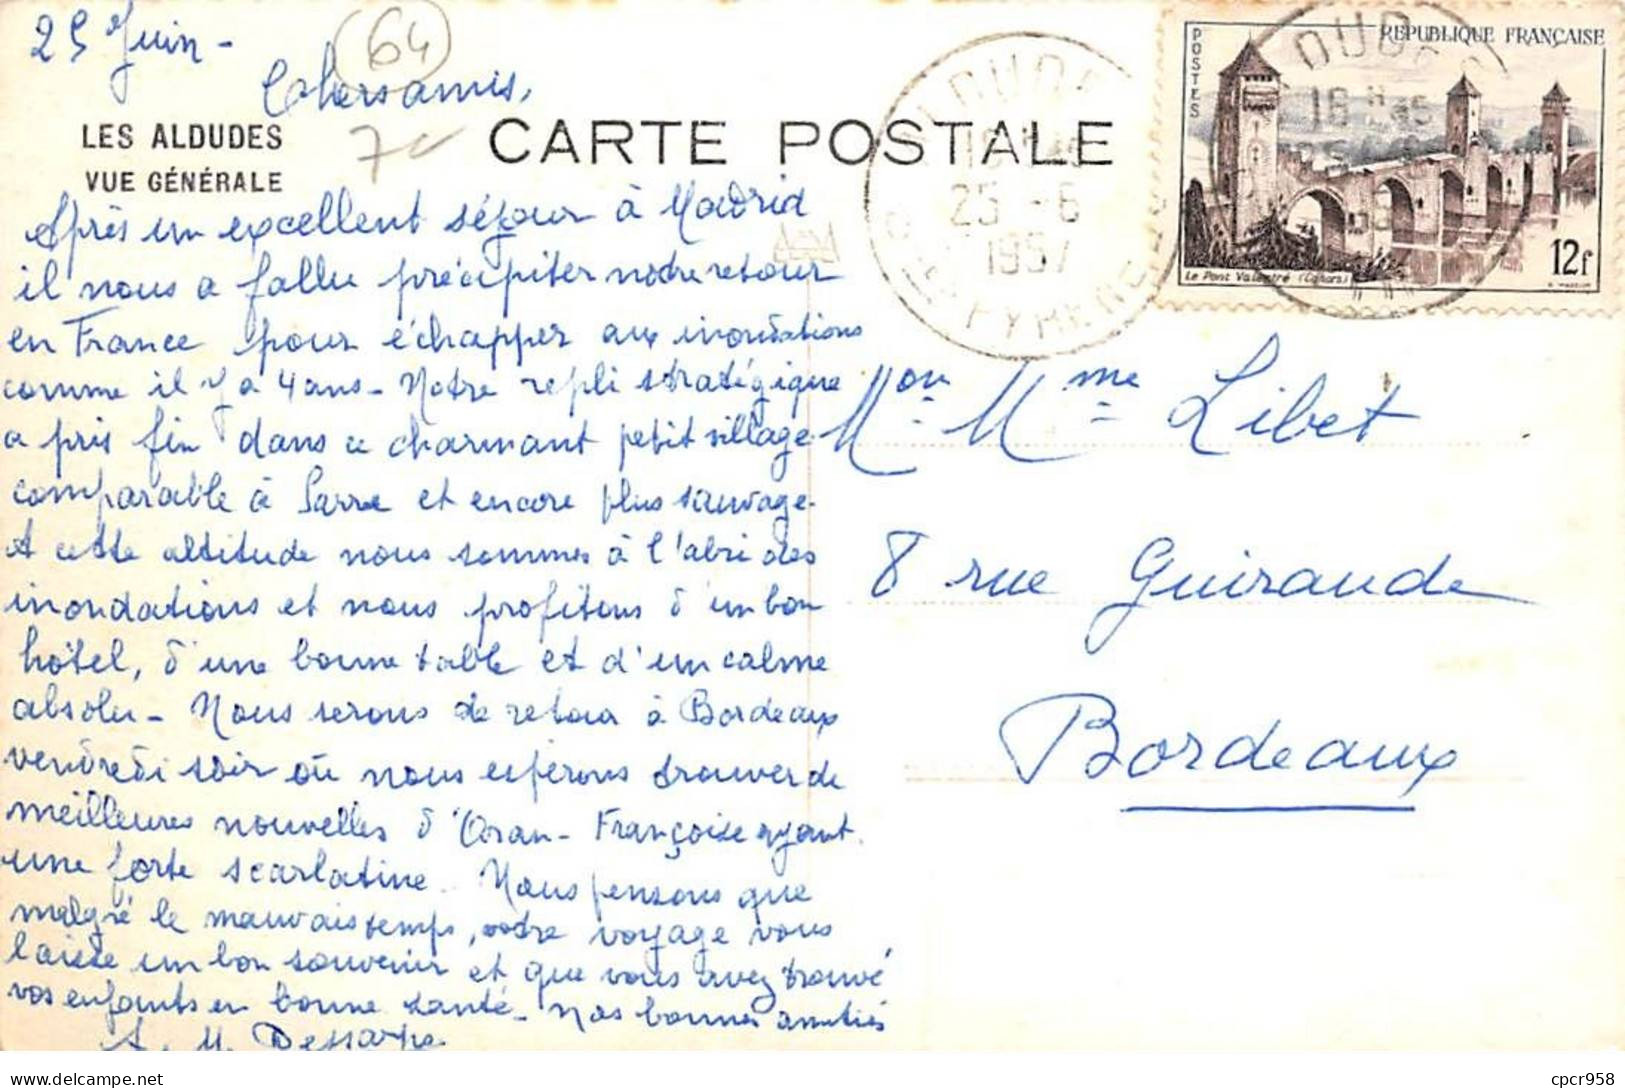 25 Juin -
64
Chers amis,
LES ALDUDES
VUE GÉNÉRALE
CARTE POSTALE
Après un excellent séjour à Madrid
il nous a fallu précipiter notre retour
en France pour échapper aux inondations
comme il y a 4 ans - Notre repli stratégique
a pris fin dans ce charmant petit village
comparable à Sarre et encore plus sauvage.
A cette altitude nous sommes à l'abri des
inondations et nous profitons d'un bon
hôtel, d'une bonne table et d'un calme
absolu - Nous serons de retour à Bordeaux
vendredi soir où nous espérons trouver de
meilleures nouvelles d'Oran - Françoise ayant
une forte scarlatine. Nous pensons que
malgré le mauvais temps, votre voyage vous
laisse un bon souvenir et que vous avez trouvé
vos enfants en bonne santé - Nos bonnes amitiés
A. M. Dessarps
18 H 45
25 -6
1957
RÉPUBLIQUE FRANÇAISE
POSTES
Le Pont Valentré (Cahors)
12f
Mon. Mme Libet
8 rue Guiraude
Bordeaux
cpcr958